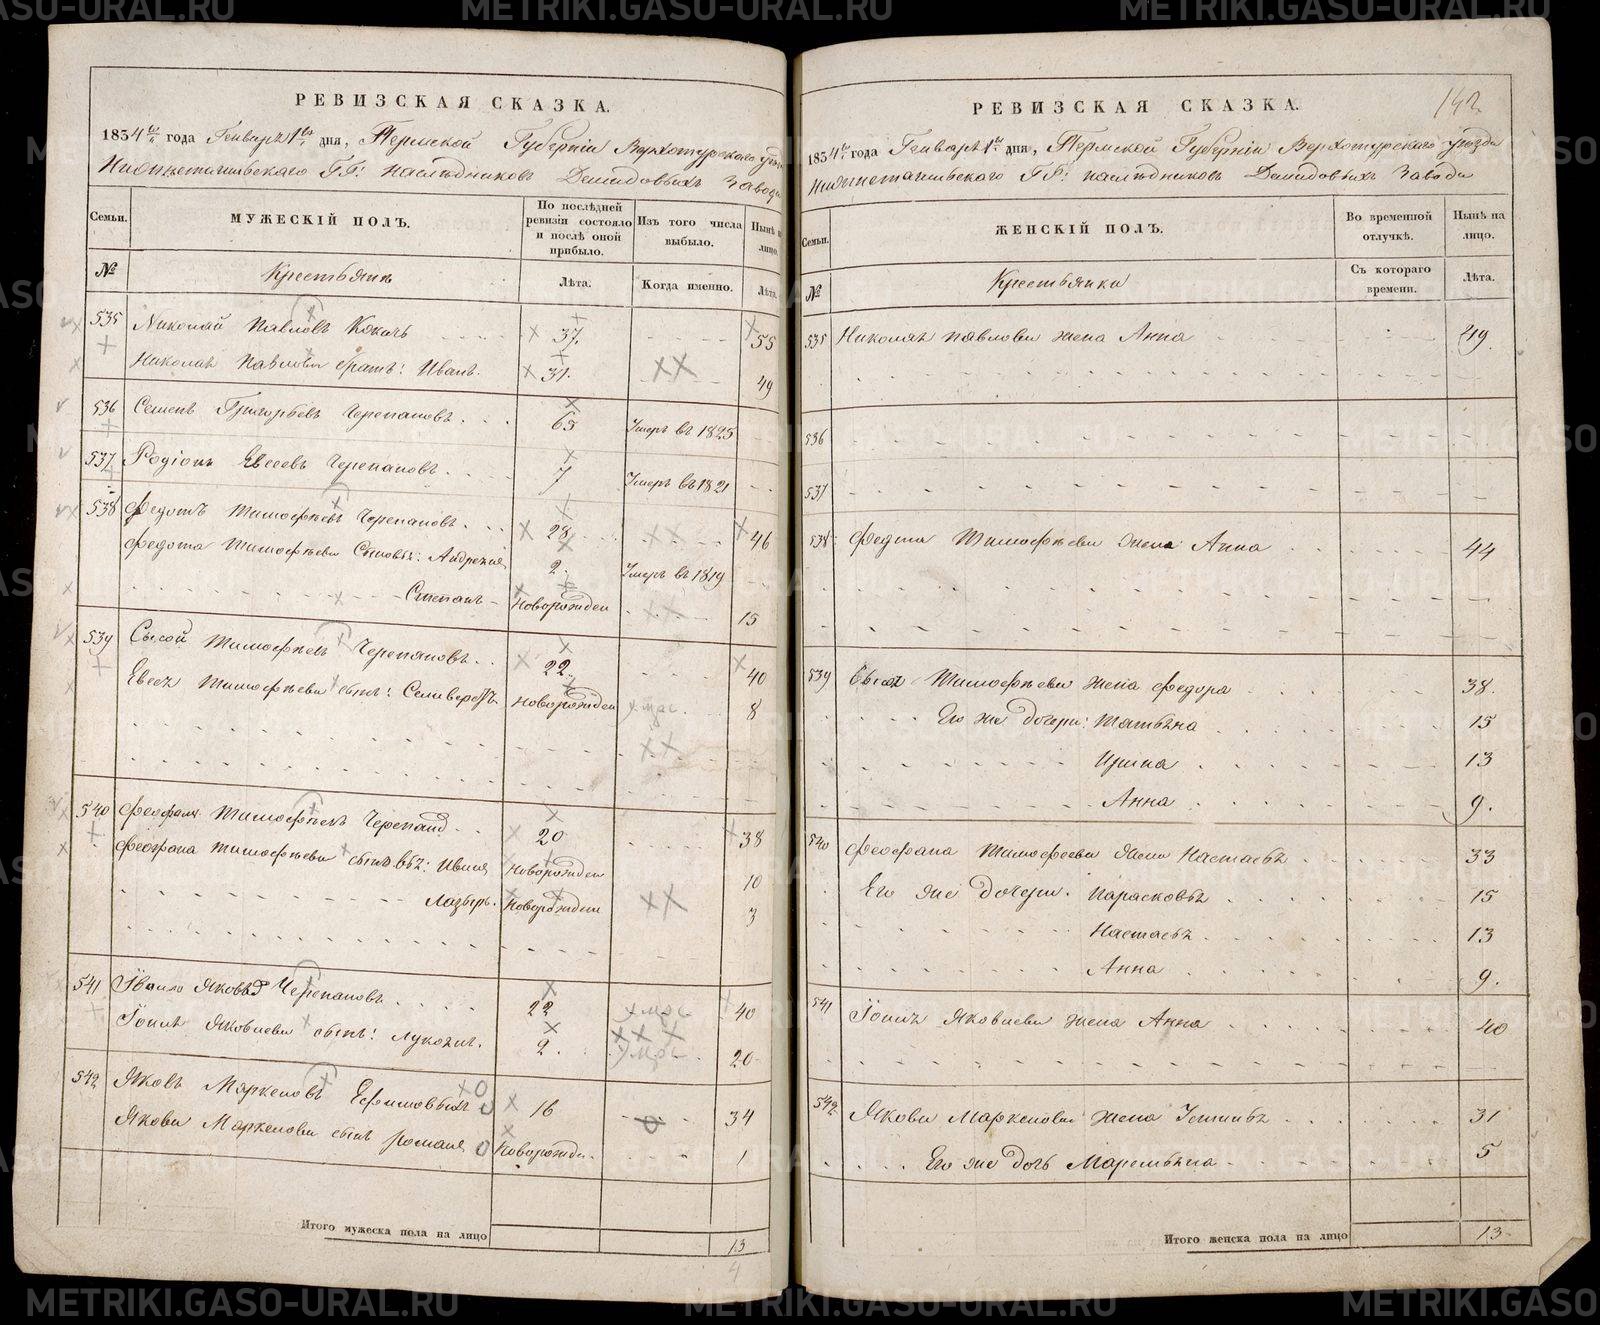 РЕВИЗСКАЯ СКАЗКА.
1834 года Генваря 1 дня, Пермской Губернiи Верхотурскаго
наслѣдниковъ Демидовыхъ завода
Семьи.
МУЖЕСКІЙ ПОЛЪ.
По послѣдней ревизіи состояло и послѣ оной прибыло.
Изъ того числа выбыло.
Нынѣ на лицо.
№
Крестьяне
Лѣта.
Когда именно.
Лѣта.
535 Николай Павловъ 37. 55
Николая Павлова братъ: Иванъ. 31. 49
536 Семенъ Григорьевъ Черепановъ. 65 Умеръ въ 1825
537 Родіонъ Евсеевъ Черепановъ. 7 Умеръ въ 1821
538 Федотъ Тимофѣевъ Черепановъ. 28 46
Федота Тимофѣева Сыновья: Андрей 2. Умеръ въ 1819
Степанъ Новорожден 15
539 Сысой Тимофѣевъ Черепановъ. 22. 40
Тимофѣева сынъ: Селиверстъ Новорожден 8
540 Феофанъ Тимофѣевъ 20 38
Феофана Тимофѣева Новорожден 10
Лазырь. Новорожден 3
541 Яковлевъ Черепановъ 22 умре 40
Яковлева сынъ: 2. умре 20
542 Яковъ Маркеловъ Ефимовыхъ 16 34
Якова Маркелова сынъ Романъ Новорожден. 1
Итого мужеска пола на лицо 13
4
142.
РЕВИЗСКАЯ СКАЗКА.
1834 года Генваря 1 дня, Пермской Губернiи Верхотурскаго уѣзда
наслѣдниковъ Демидовыхъ завода
Семьи.
ЖЕНСКІЙ ПОЛЪ.
Во временной отлучкѣ.
Нынѣ на лицо.
№
Крестьянки
Съ котораго времени.
Лѣта.
535 Николая Павлова жена Анна 49.
536
537
538 Федота Тимофѣева жена Анна 44
539 Тимофѣева жена Федора 38.
Его же дочери: Татьяна 15
Ирина 13
Анна 9.
540 Феофана Тимофеева жена Настасья 33
Его же дочери. Парасковья 15
Настасья 13
Анна 9.
541 Яковлева жена Анна 40
542 Якова Маркелова жена 31
Его же дочь 5
Итого женска пола на лицо 13.
METRIKI.GASO-URAL.RU